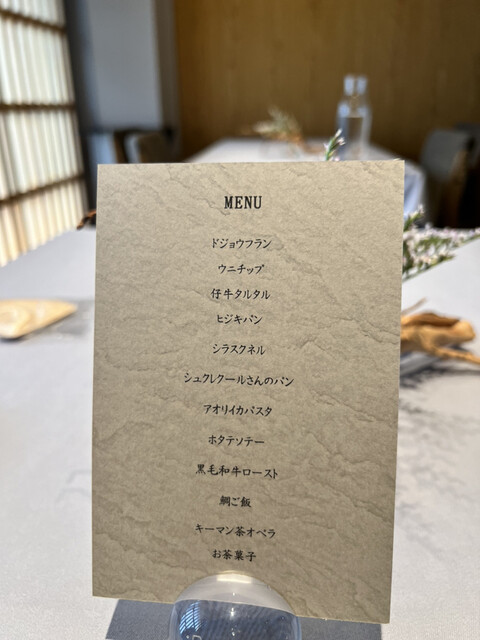 MENU
ドジョウフラン
ウニチップ
仔牛タルタル
ヒジキパン
シラスクネル
シュクレクールさんのパン
アオリイカパスタ
ホタテソテー
黒毛和牛ロースト
鯛ご飯
キーマン茶オペラ
お茶菓子